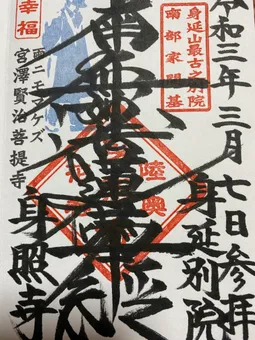 令和三年三月七日参拝
身延山最古之別院
南部家開基
身延別院
南無妙法蓮華経
陸奥
幸福
雨ニモマケズ
宮澤賢治菩提寺
身照寺